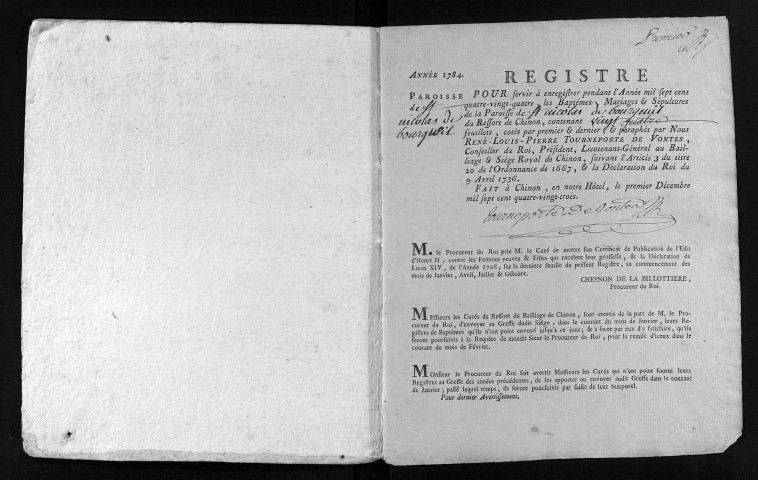 Premier
ANNÉE 1784.
REGISTRE
PAROISSE
de St
nicolas de
bourgueil
POUR servir à enregistrer pendant l'Année mil sept cens
quatre-vingt-quatre, les Baptêmes, Mariages & Sépultures
de la Paroisse de St nicolas de bourgueil
du Ressort de Chinon, contenant vingt quatre
feuillets, cotés par premier & dernier, & paraphés par Nous
RENÉ-LOUIS-PIERRE TOURNEPORTE DE VONTES,
Conseiller du Roi, Président, Lieutenant-Général au Bail-
liage & Siége Royal de Chinon, suivant l'Article 3 du titre
20 de l'Ordonnance de 1667, & la Déclaration du Roi du
9 Avril 1736.
FAIT à Chinon, en notre Hôtel, le premier Décembre
mil sept cent quatre-vingt-trois.
tourneporte de vontes
M. le Procureur du Roi prie M. le Curé de mettre son Certificat de Publication de l'Edit
d'Henri II, contre les Femmes veuves & Filles qui recelent leur grossesse, & la Déclaration de
Louis XIV, de l'Année 1708, sur la derniere feuille du présent Registre, au commencement des
mois de Janvier, Avril, Juillet & Octobre.
CHESNON DE LA BILLOTTIERE,
Procureur du Roi.
Messieurs les Curés du Ressort du Bailliage de Chinon, sont avertis de la part de M. le Pro-
cureur du Roi, d'envoyer au Greffe dudit Siége, dans le courant du mois de Janvier, leurs Re-
gistres de Baptêmes qu'ils n'ont point envoyé jusqu'à ce jour; & à faute par eux d'y satisfaire, qu'ils
seront poursuivis à la Requête de mondit Sieur le Procureur du Roi, pour la remise d'iceux dans le
courant du mois de Février.
Monsieur le Procureur du Roi fait avertir Messieurs les Curés qui n'ont point fourni leurs
Registres au Greffe des années précédentes, de les apporter ou envoyer audit Greffe dans le courant
de Janvier; passé lequel temps, ils seront poursuivis par saisie de leur temporel.
Pour dernier Avertissement.